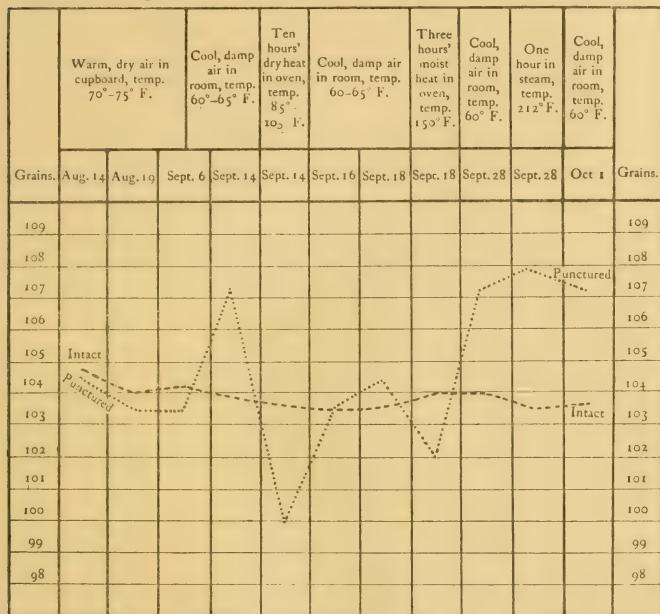 Warm, dry air in
cupboard, temp.
70°-75° F.
Cool, damp
air in
room, temp.
60°-65° F.
Ten
hours'
dry heat
in oven,
temp.
85°-
100 F.
Cool, damp air
in room, temp.
60-65° F.
Three
hours'
moist
heat in
oven,
temp.
150° F.
Cool,
damp
air in
room,
temp.
60° F.
One
hour in
steam,
temp.
212° F.
Cool,
damp
air in
room,
temp.
60° F.
Grains. Aug. 14 Aug. 19 Sept. 6 Sept. 14 Sept. 14 Sept. 16 Sept. 18 Sept. 18 Sept. 28 Sept. 28 Oct 1 Grains.
109 109
108 108
Punctured
107 107
106 106
105 105
Intact
104 104
Punctured
103 103
Intact
102 102
101 101
100 100
99 99
98 98